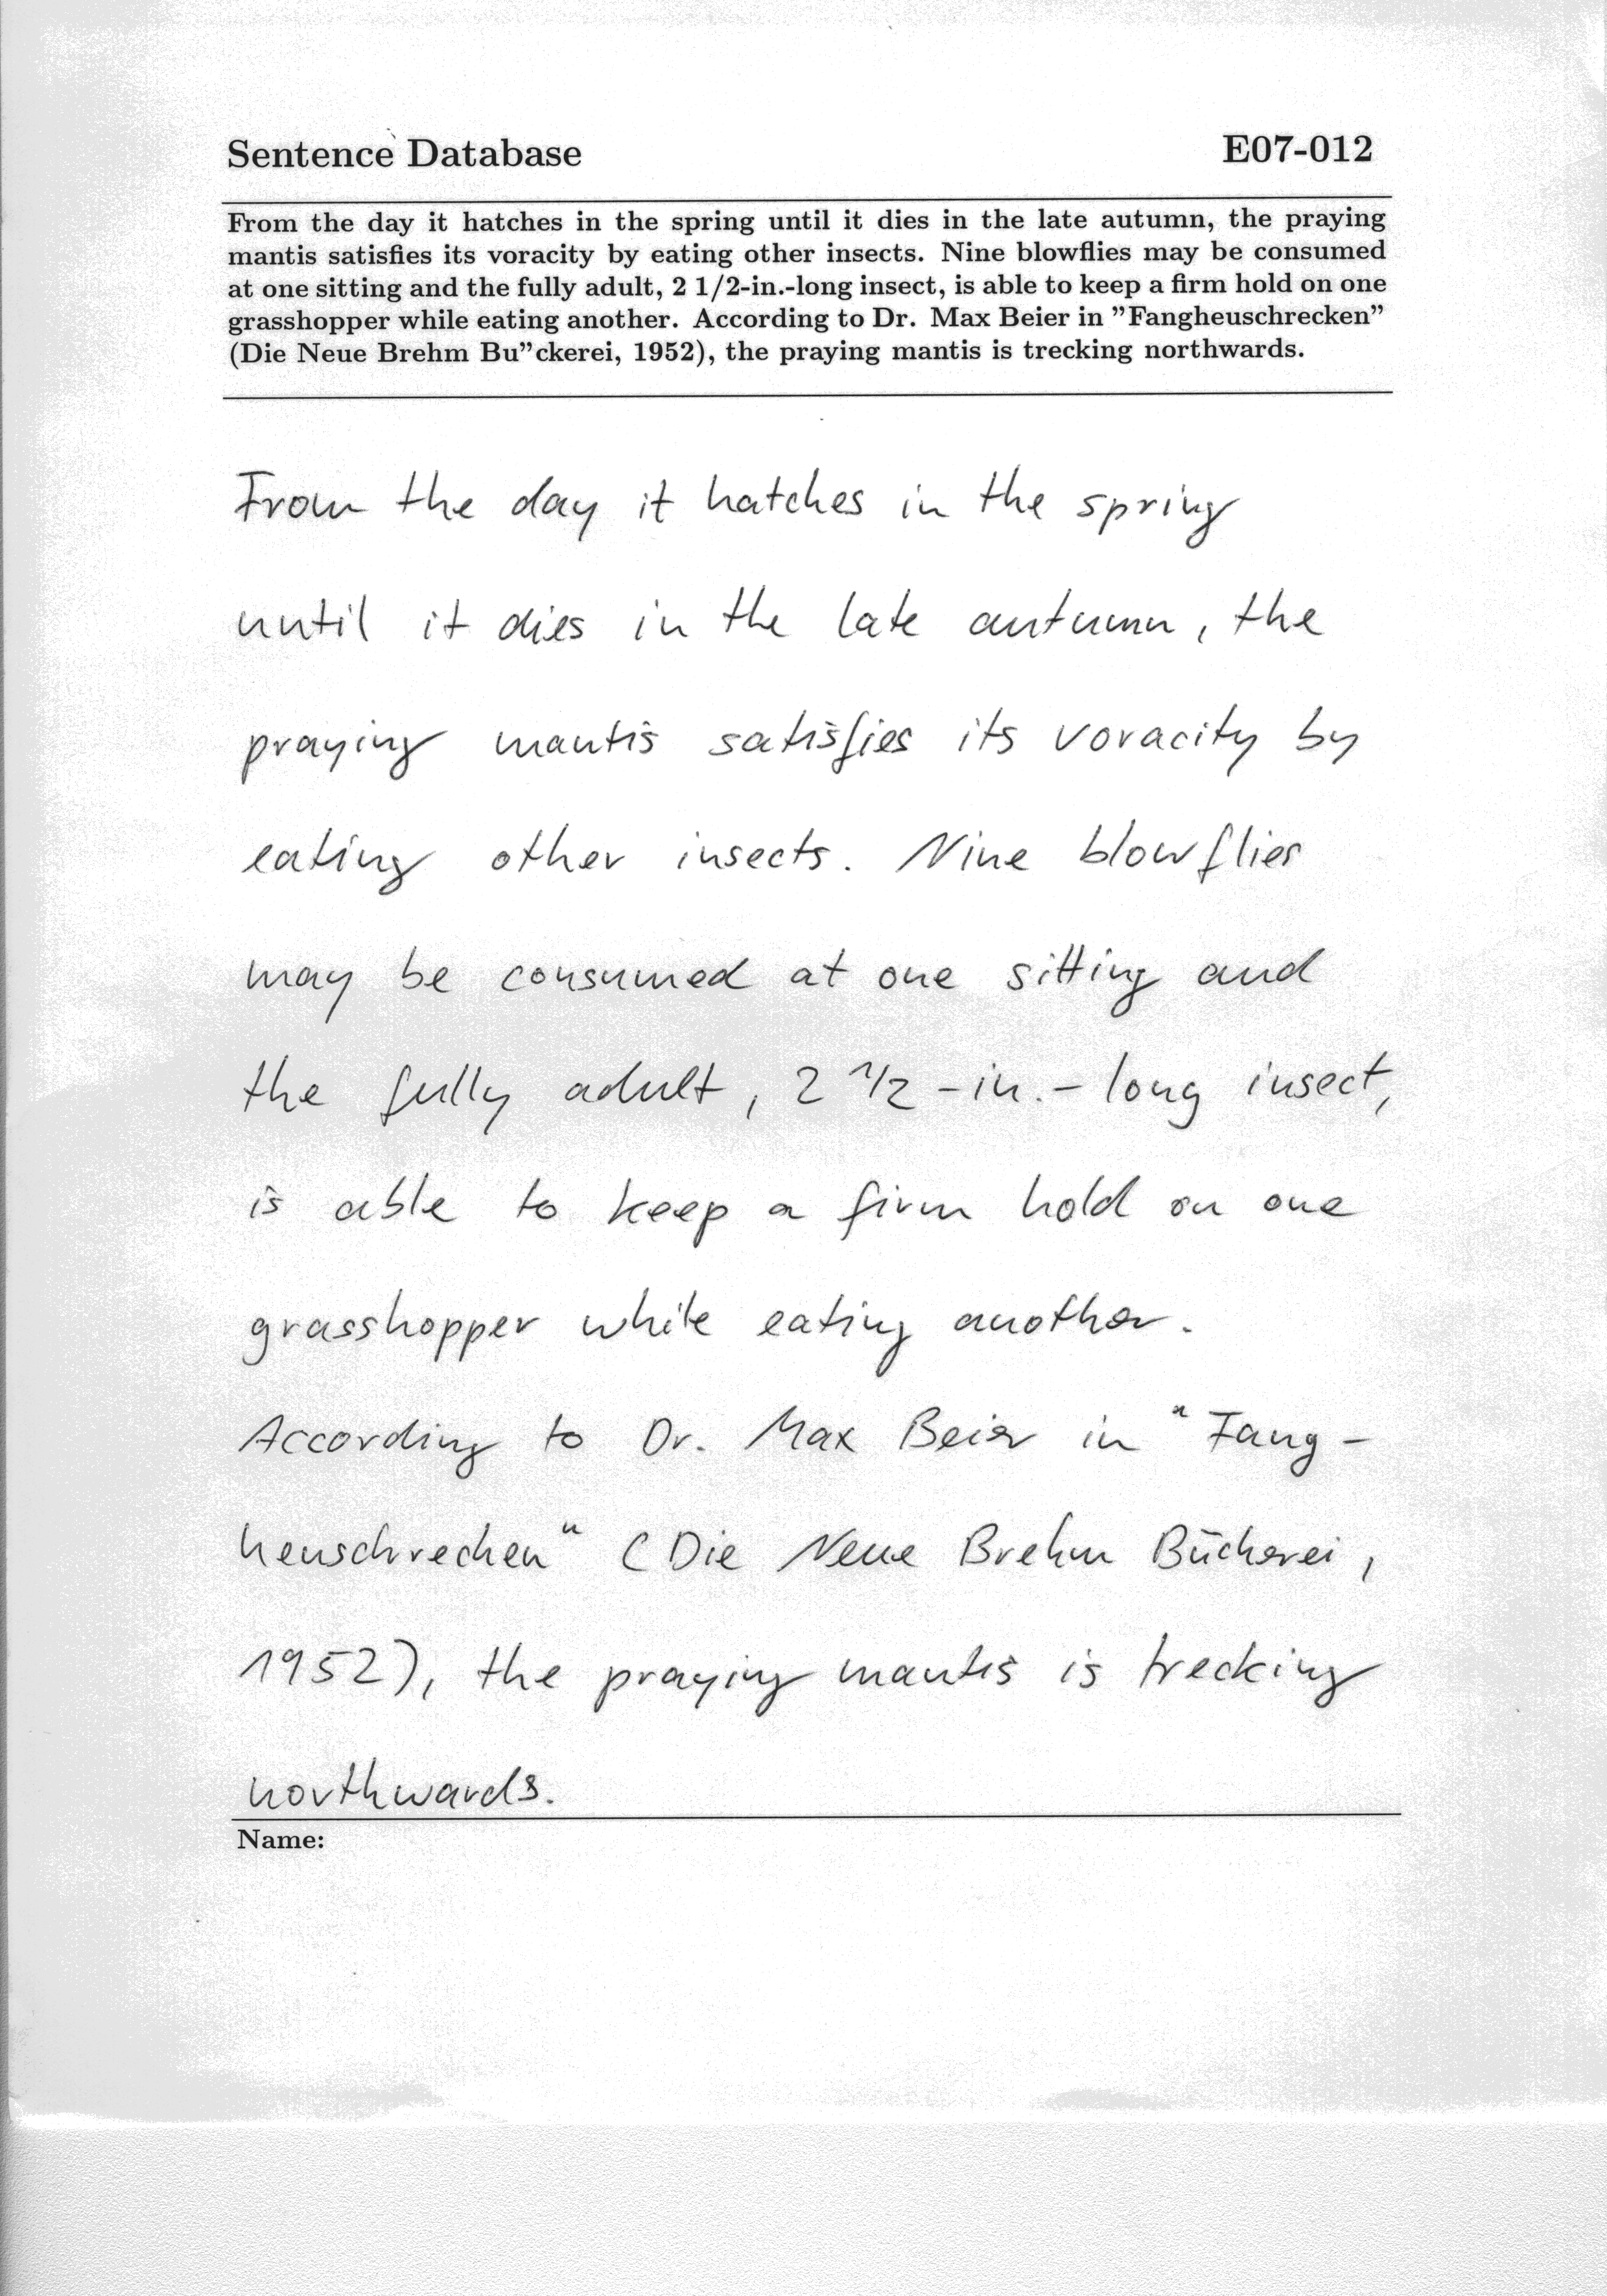 Sentence Database
E07-012
From the day it hatches in the spring until it dies in the late autumn, the praying
mantis satisfies its voracity by eating other insects. Nine blowflies may be consumed
at one sitting and the fully adult, 2 1/2-in.-long insect, is able to keep a firm hold on one
grasshopper while eating another. According to Dr. Max Beier in ”Fangheuschrecken”
(Die Neue Brehm Bu”ckerei, 1952), the praying mantis is trecking northwards.
From the day it hatches in the spring
until it dies in the late autumn, the
praying mantis satisfies its voracity by
eating other insects. Nine blowflies
may be consumed at one sitting and
the fully adult, 2 1/2-in.-long insect,
is able to keep a firm hold on one
grasshopper while eating another.
According to Dr. Max Beier in "Fang-
heuschrecken" (Die Neue Brehm Bücherei,
1952), the praying mantis is trecking
northwards.
Name: